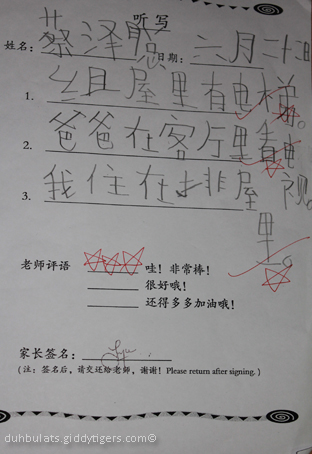 听写
姓名：蔡泽聪 日期：六月二十四
1. 组屋里有电梯。
2. 爸爸在客厅里看电视。
3. 我住在排屋里。
老师评语 哇！非常棒！
很好哦！
还得多多加油哦！
家长签名：
(注：签名后，请交还给老师，谢谢！Please return after signing.)
duhbulats.giddytigers.com©